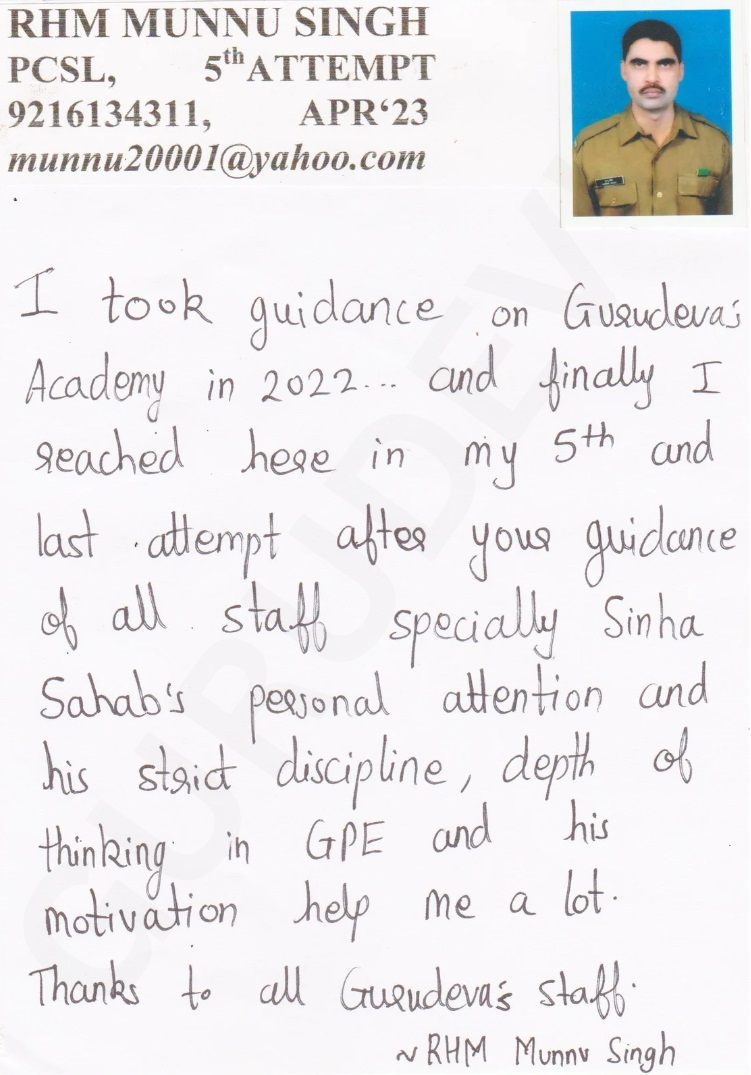 RHM MUNNU SINGH
PCSL, 5th ATTEMPT
9216134311, APR‘23
munnu20001@yahoo.com
I took guidance on Gurudeva's
Academy in 2022... and finally I
reached here in my 5th and
last attempt after your guidance
of all staff specially Sinha
Sahab's personal attention and
his strict discipline, depth of
thinking in GPE and his
motivation help me a lot.
Thanks to all Gurudeva's staff.
~ RHM Munnu Singh
GURUDEV